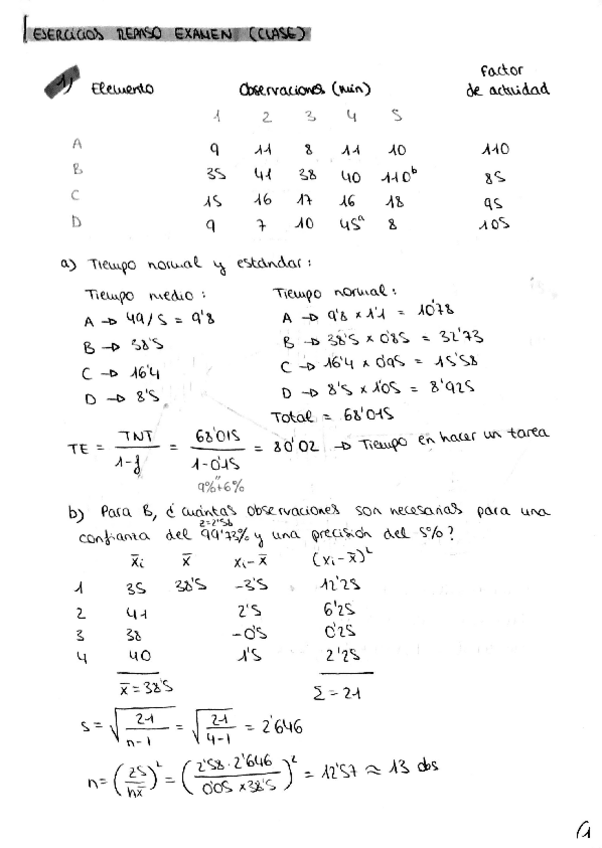 EJERCICIOS REPASO EXAMEN (CLASE)
1) Elemento Observaciones (min) Factor de actividad
1 2 3 4 5
A 9 11 8 11 10 110
B 35 41 38 40 110ᵇ 85
C 15 16 17 16 18 95
D 9 7 10 45ᵃ 8 105
a) Tiempo normal y estándar:
Tiempo medio: Tiempo normal:
A → 49/5 = 9'8 A → 9'8 x 1'1 = 10'78
B → 38'5 B → 38'5 x 0'85 = 32'73
C → 16'4 C → 16'4 x 0'95 = 15'58
D → 8'5 D → 8'5 x 1'05 = 8'925
Total = 68'015
TE = TNT / 1-f = 68'015 / 1-0'15 = 80'02 → Tiempo en hacer un tarea
9%+6%
b) Para B, ¿cuántas observaciones son necesarias para una
z=2'58
confianza del 99'73% y una precisión del 5%?
x̄i x̄ xi-x̄ (xi-x̄)²
1 35 38'5 -3'5 12'25
2 41 2'5 6'25
3 38 -0'5 0'25
4 40 1'5 2'25
x̄=38'5 Σ=21
s = √(21 / n-1) = √(21 / 4-1) = 2'646
n = (zs / hx̄)² = (2'58 · 2'646 / 0'05 x 38'5)² = 12'57 ≈ 13 obs